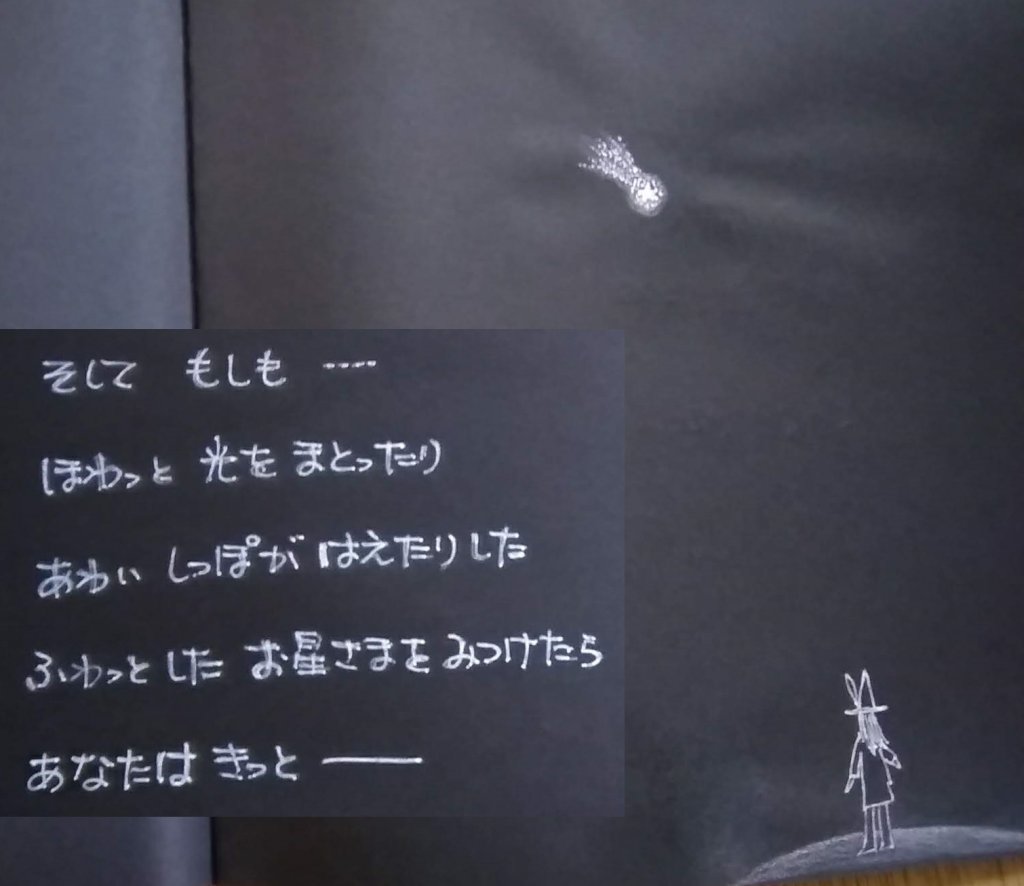 そして もしも ‥‥
ほわっと 光を まとったり
あわい しっぽが はえたりした
ふわっとした お星さまを みつけたら
あなたは きっと ――